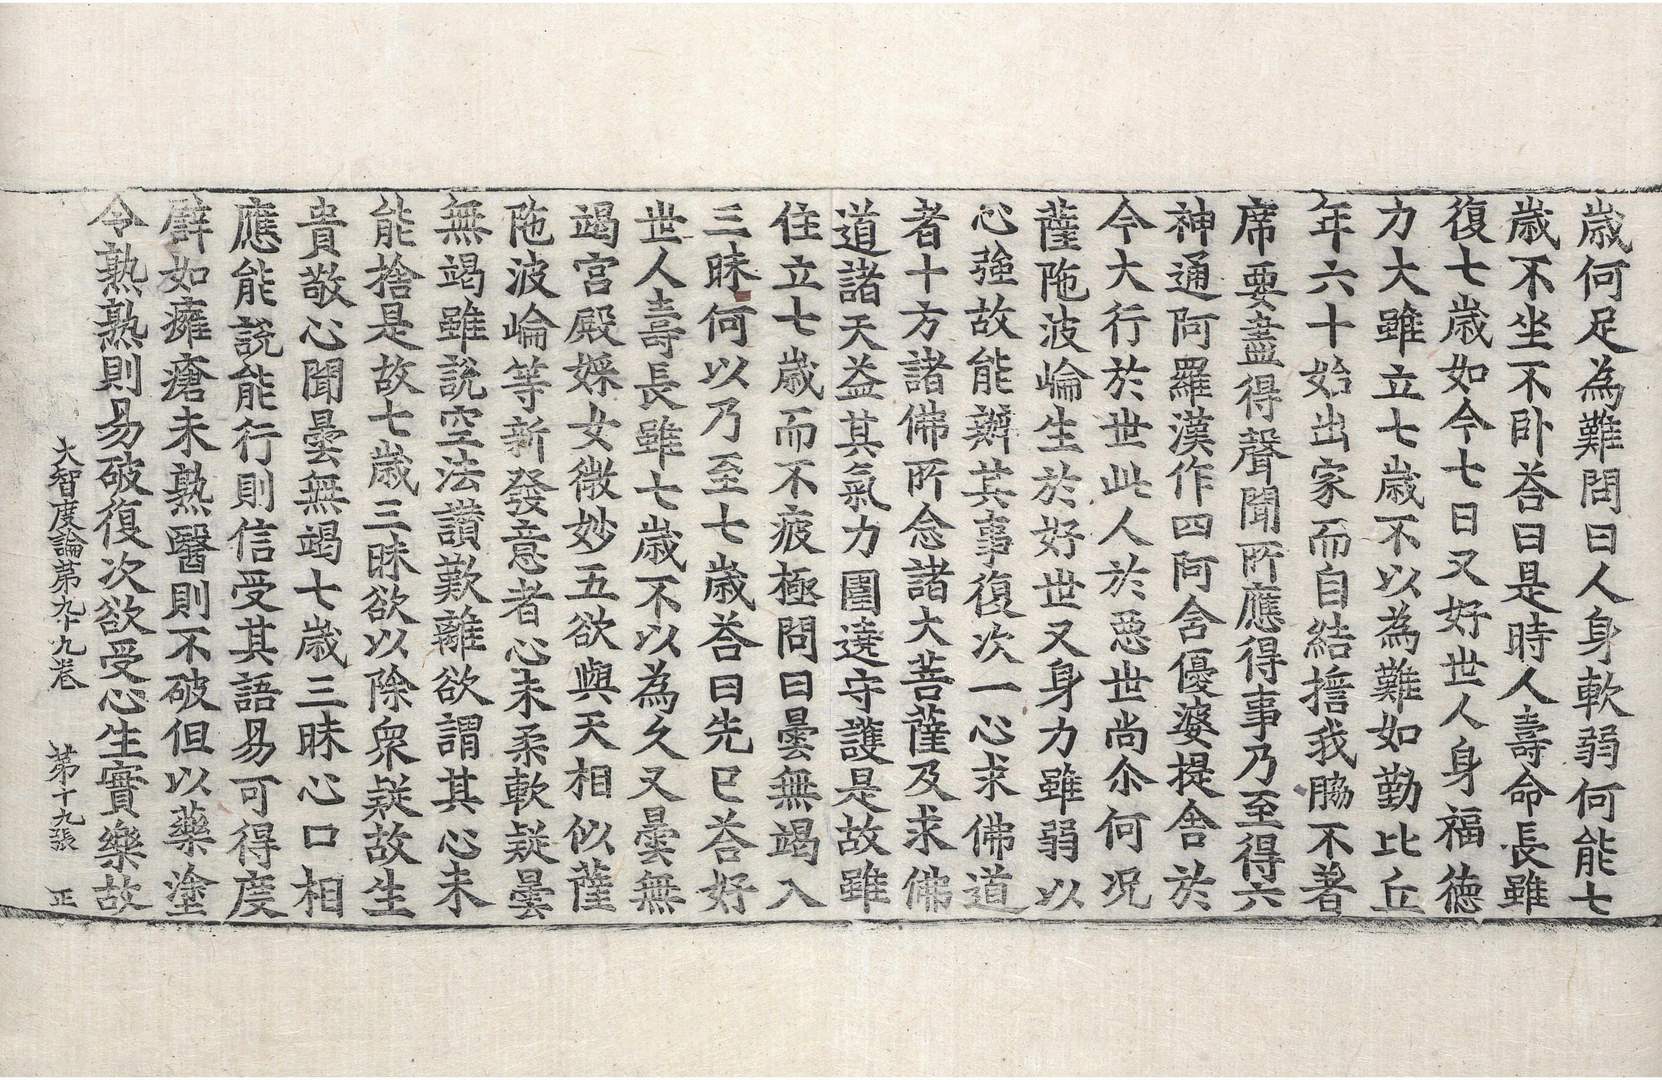 歳何足為難問曰人身軟弱何能七
歳不坐不卧荅曰是時人壽命長雖
復七歳如今七日又好世人身福德
力大雖立七歳不以為難如勤比丘
年六十始出家而自結擔我脇不著
席要盡得聲聞所應得事乃至得六
神通阿羅漢作四阿含優婆提舎於
今大行於世此人於惡世尚尒何况
薩陁波崘生於好世又身力雖弱以
心強故能辦其事復次一心求佛道
者十方諸佛所念諸大菩薩及求佛
道諸天益其氣力圍遶守護是故雖
住立七歳而不疲極問曰曇無竭入
三昧何以乃至七歳荅曰先已荅好
世人壽長雖七歳不以為久又曇無
竭宮殿婇女微妙五欲與天相似薩
陁波崘等新發意者心未柔軟疑曇
無竭雖說空法讚歎離欲謂其心未
能捨是故七歳三昧欲以除衆疑故生
貴敬心聞曇無竭七歳三昧心口相
應能說能行則信受其語易可得度
譬如癰瘡未熟醫則不破但以藥塗
令熟熟則易破復次欲受心生實樂故
大智度論第九十九卷　第十九張　正